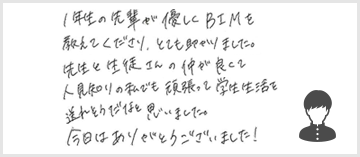 1年生の先輩が優しくBIMを
教えてくださり、とても助かりました。
先生と生徒さんの仲が良くて
人見知りの私でも頑張って学生生活を
送れそうだなと思いました。
今日はありがとうございました!